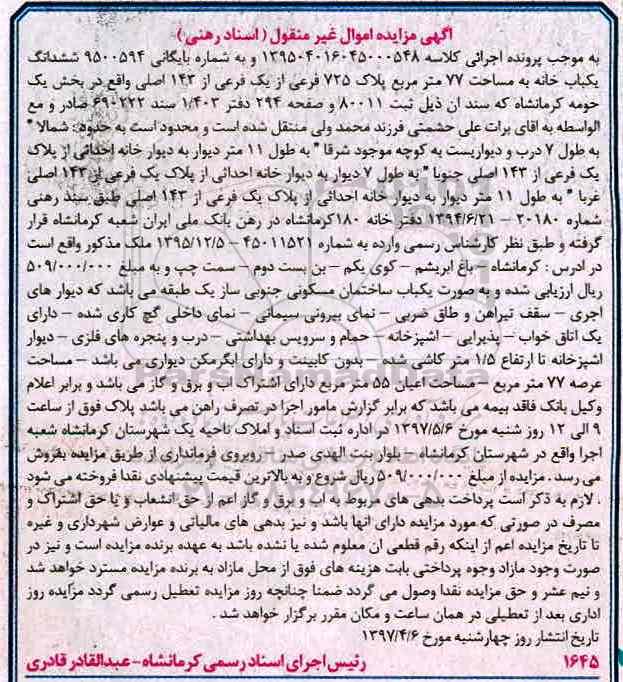 آگهی مزایده اموال غیر منقول ( اسناد رهنی )
به موجب پرونده اجرائی کلاسه ۱۳۹۵۰۴۰۱۶۰۴۵۰۰۰۵۴۸ و به شماره بایگانی ۹۵۰۰۵۹۴ ششدانگ
یکباب خانه به مساحت ۷۷ متر مربع پلاک ۷۲۵ فرعی از یک فرعی از ۱۴۳ اصلی واقع در بخش یک
حومه کرمانشاه که سند ان ذیل ثبت ۸۰۰۱۱ و صفحه ۲۹۴ دفتر ۱/۴۰۳ سند ۶۹۰۲۲۲ صادر و مع
الواسطه به اقای برات علی حشمتی فرزند محمد ولی منتقل شده است و محدود است به حدود : شمالا "
به طول ۷ درب و دیواریست به کوچه موجود شرقا " به طول ۱۱ متر دیوار به دیوار خانه احداثی از پلاک
یک فرعی از ۱۴۳ اصلی جنوبا " به طول ۷ دیوار به دیوار خانه احداثی از پلاک یک فرعی از ۱۴۳ اصلی
غربا " به طول ۱۱ متر دیوار به دیوار خانه احداثی از پلاک یک فرعی از ۱۴۳ اصلی طبق سند رهنی
شماره ۲۰۱۸۰ – ۱۳۹۴/۶/۲۱ دفتر خانه ۱۸۰کرمانشاه در رهن بانک ملی ایران شعبه کرمانشاه قرار
گرفته و طبق نظر کارشناس رسمی وارده به شماره ۴۵۰۱۱۵۲۱ – ۱۳۹۵/۱۲/۵ ملک مذکور واقع است
در ادرس : کرمانشاه – باغ ابریشم – کوی یکم – بن بست دوم – سمت چپ و به مبلغ ۵۰۹/۰۰۰/۰۰۰
ریال ارزیابی شده و به صورت یکباب ساختمان مسکونی جنوبی ساز یک طبقه می باشد که دیوار های
اجری – سقف تیراهن و طاق ضربی – نمای بیرونی سیمانی – نمای داخلی گچ کاری شده – دارای
یک اتاق خواب – پذیرایی – اشپزخانه – حمام و سرویس بهداشتی – درب و پنجره های فلزی – دیوار
اشپزخانه تا ارتفاع ۱/۵ متر کاشی شده – بدون کابینت و دارای ابگرمکن دیواری می باشد – مساحت
عرصه ۷۷ متر مربع – مساحت اعیان ۵۵ متر مربع دارای اشتراک اب و برق و گاز می باشد و برابر اعلام
وکیل بانک فاقد بیمه می باشد که برابر گزارش مامور اجرا در تصرف راهن می باشد پلاک فوق از ساعت
۹ الی ۱۲ روز شنبه مورخ ۱۳۹۷/۵/۶ در اداره ثبت اسناد و املاک ناحیه یک شهرستان کرمانشاه شعبه
اجرا واقع در شهرستان کرمانشاه – بلوار بنت الهدی صدر – روبروی فرمانداری از طریق مزایده بفروش
می رسد . مزایده از مبلغ ۵۰۹/۰۰۰/۰۰۰ ریال شروع و به بالاترین قیمت پیشنهادی نقدا فروخته می شود
، لازم به ذکر است پرداخت بدهی های مربوط به اب و برق و گاز اعم از حق انشعاب و یا حق اشتراک و
مصرف در صورتی که مورد مزایده دارای انها باشد و نیز بدهی های مالیاتی و عوارض شهرداری و غیره
تا تاریخ مزایده اعم از اینکه رقم قطعی ان معلوم شده یا نشده باشد به عهده برنده مزایده است و نیز در
صورت وجود مازاد وجوه پرداختی بابت هزینه های فوق از محل مازاد به برنده مزایده مسترد خواهد شد
و نیم عشر و حق مزایده نقدا وصول می گردد ضمنا چنانچه روز مزایده تعطیل رسمی گردد مزایده روز
اداری بعد از تعطیلی در همان ساعت و مکان مقرر برگزار خواهد شد .
تاریخ انتشار روز چهارشنبه مورخ ۱۳۹۷/۴/۶
۱۶۴۵ رئیس اجرای اسناد رسمی کرمانشاه – عبدالقادر قادری